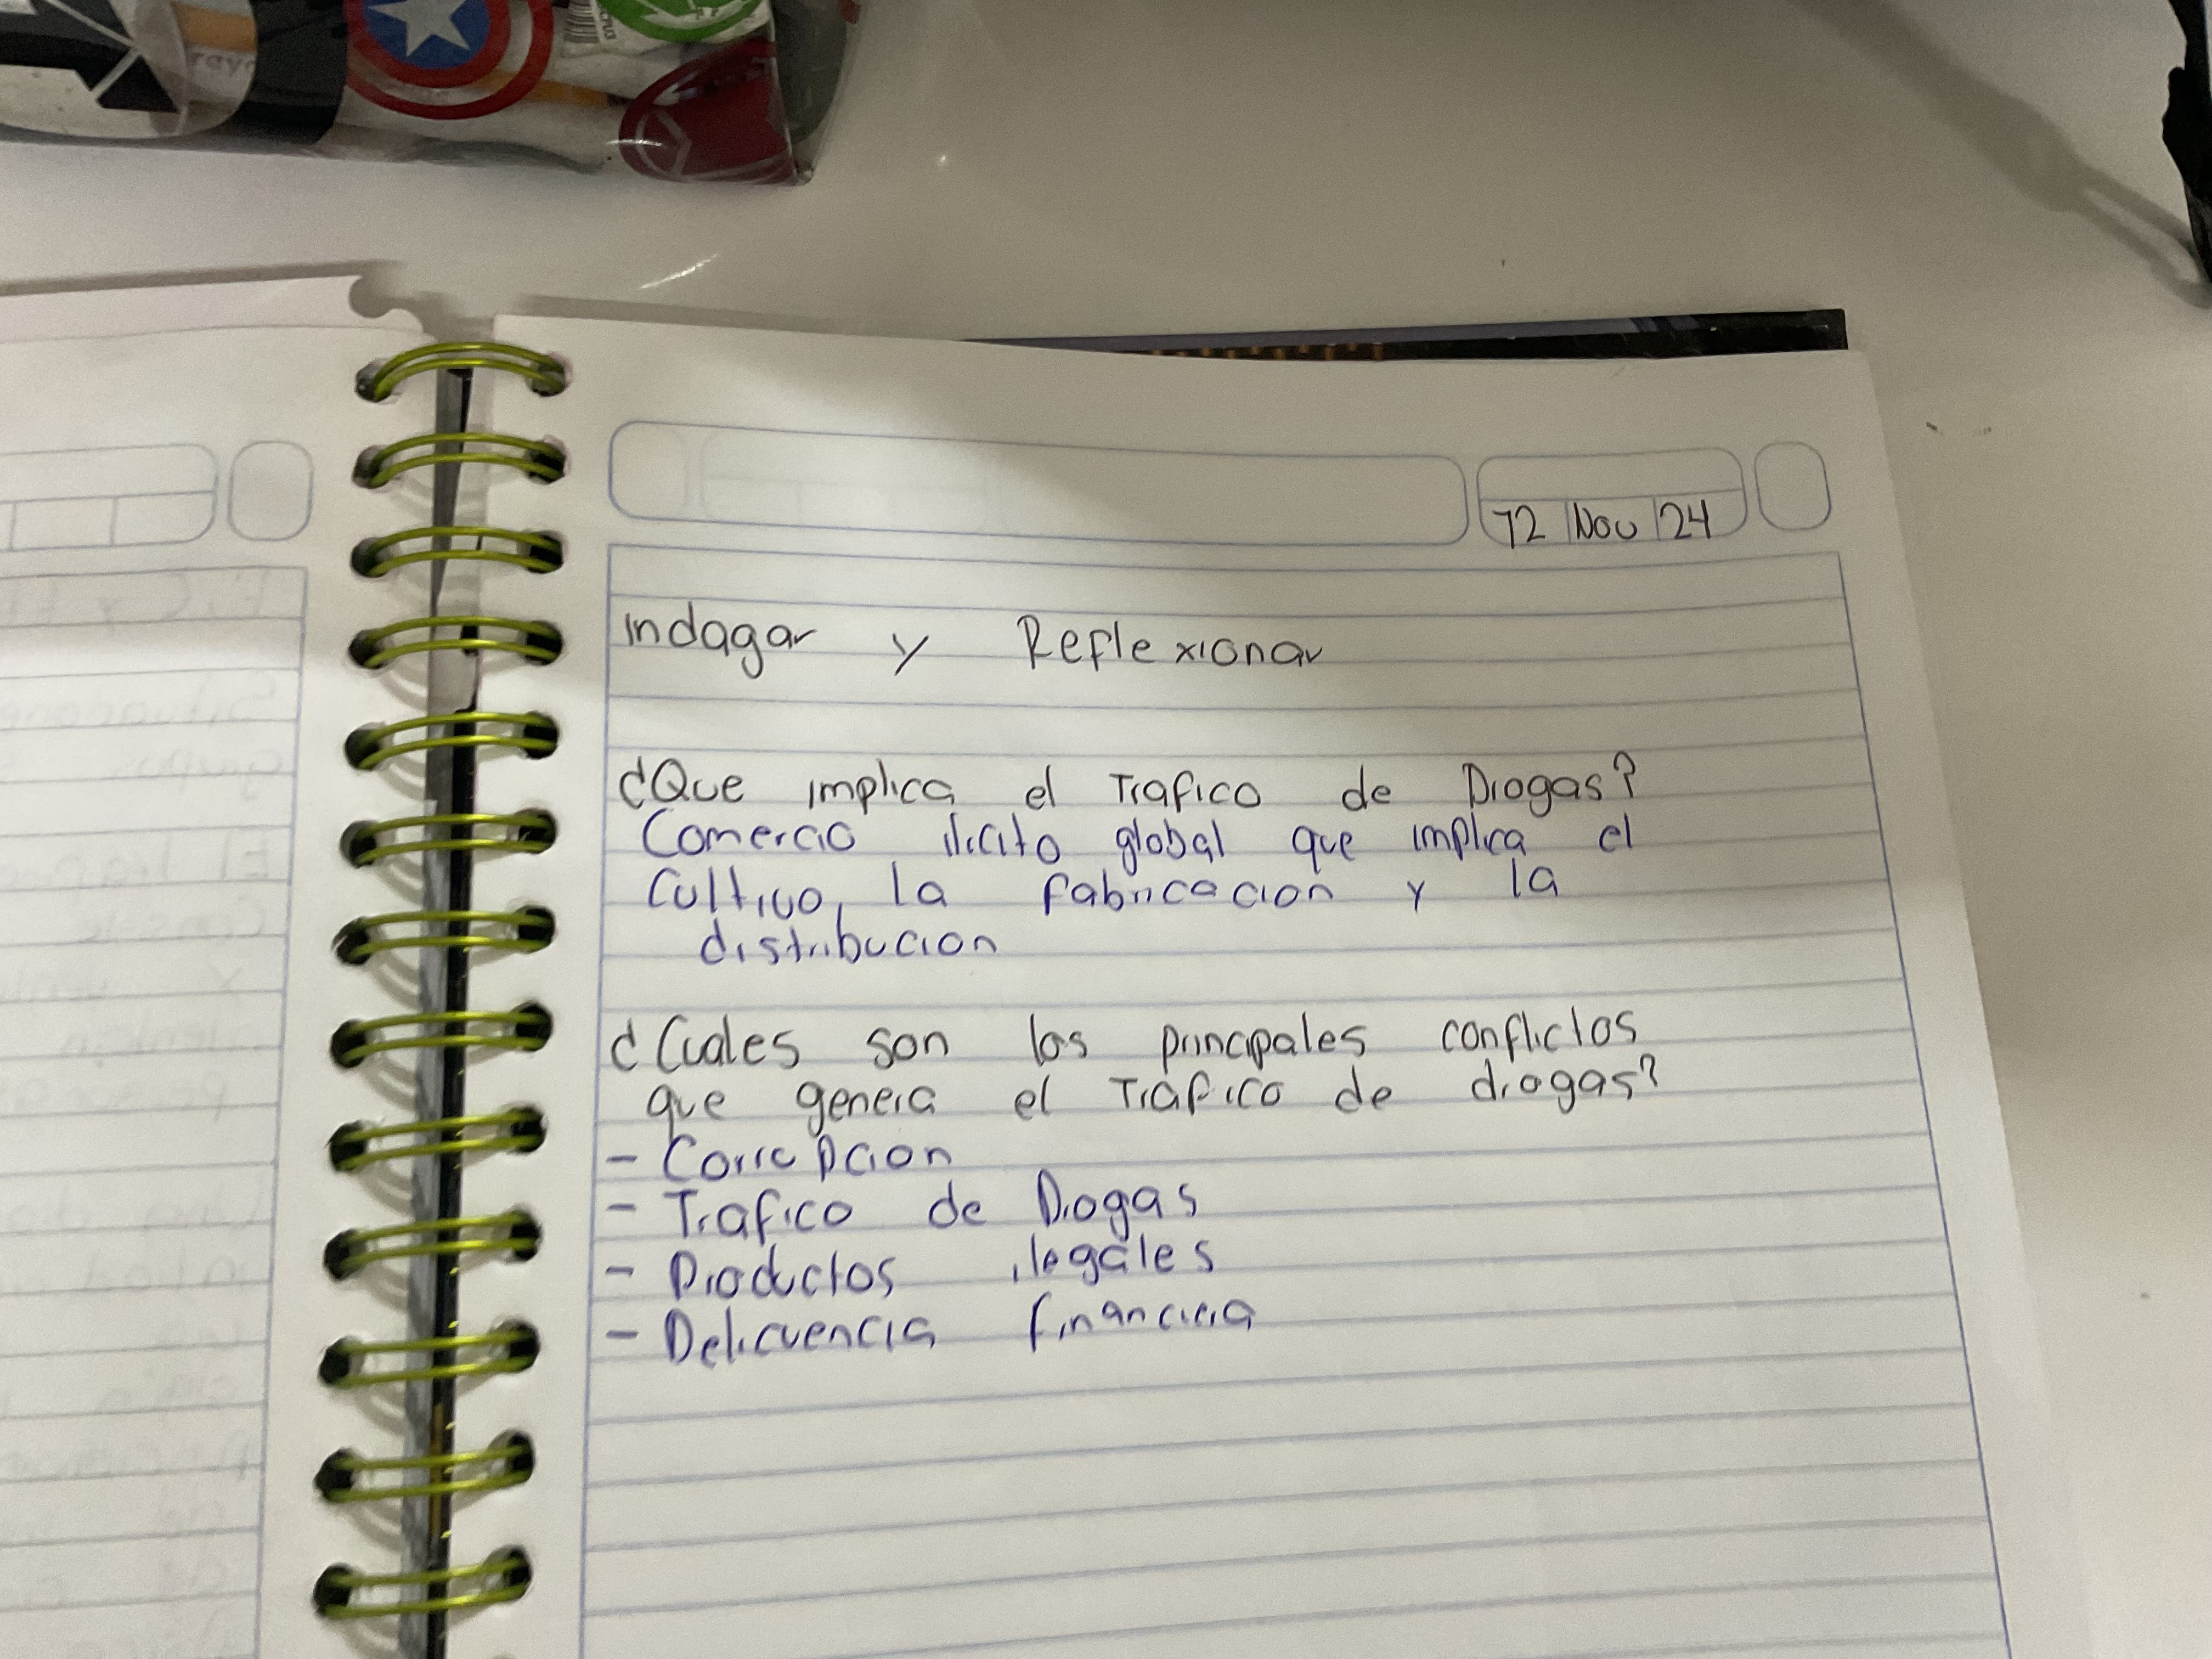 12 Nov 24
Indagar y Reflexionar
¿Que implica el Trafico de Drogas?
Comercio ilicito global que implica el
Cultivo, la fabricacion y la
distribucion
¿Cuales son los principales conflictos
que genera el Trafico de drogas?
- Corrupcion
- Trafico de Drogas
- Productos ilegales
- Delicuencia financiera